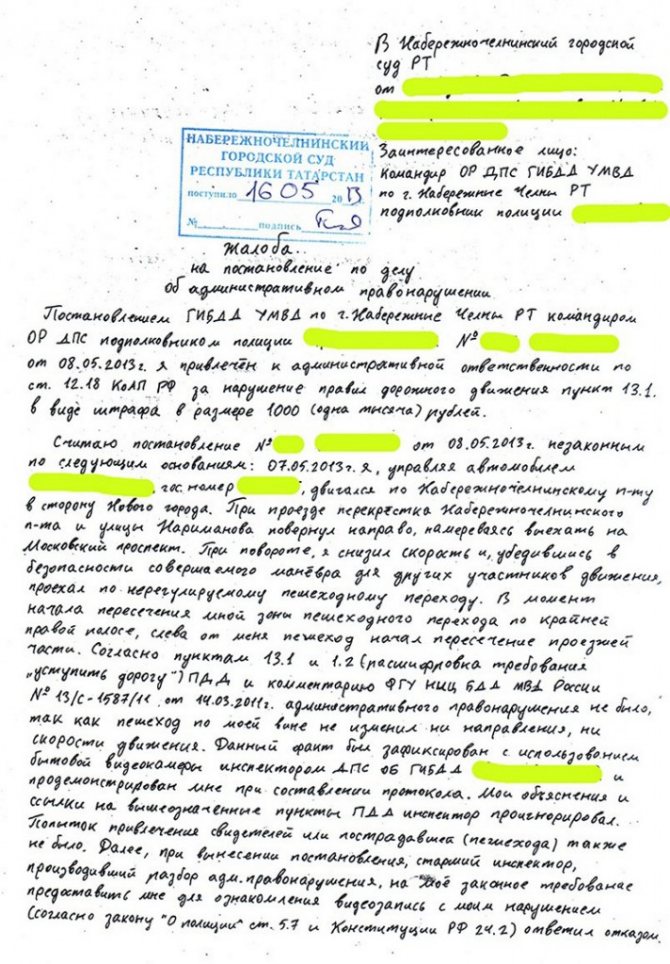 В Набережночелнинский городской
суд РТ
от
Заинтересованное лицо:
Командир ОР ДПС ГИБДД УМВД
по г. Набережные Челны РТ
подполковник полиции
НАБЕРЕЖНОЧЕЛНИНСКИЙ
ГОРОДСКОЙ СУД
РЕСПУБЛИКИ ТАТАРСТАН
поступило 16 05 2013
№ подпись
Жалоба..
на постановление по делу
об административном правонарушении
Постановлением ГИБДД УМВД по г. Набережные Челны РТ командиром
ОР ДПС подполковником полиции №
от 08.05.2013г. я привлечён к административной ответственности по
ст. 12.18 КоАП РФ за нарушение правил дорожного движения пункт 13.1.
в виде штрафа в размере 1000 (одна тысяча) рублей.
Считаю постановление № от 08.05.2013г. незаконным
по следующим основаниям: 07.05.2013г. я, управляя автомобилем
, гос. номер , двигался по Набережночелнинскому п-ту
в сторону Нового города. При проезде перекрёстка Набережночелнинского
п-та и улицы Нариманова повернул направо, намереваясь выехать на
Московский проспект. При повороте, я снизил скорость и, убедившись в
безопасности совершаемого манёвра для других участников движения,
проехал по нерегулируемому пешеходному переходу. В момент
начала пересечения мной зоны пешеходного перехода по крайней
правой полосе, слева от меня пешеход начал пересечение проезжей
части. Согласно пунктам 13.1 и 1.2 (расшифровка требования
„уступить дорогу") ПДД и комментарию ФГУ НИЦ БДД МВД России
№ 13/с-1587/11 от 14.03.2011г. административного правонарушения не было,
так как пешеход по моей вине не изменил ни направления, ни
скорости движения. Данный факт был зафиксирован с использованием
бытовой видеокамеры инспектором ДПС ОБ ГИБДД и
продемонстрирован мне при составлении протокола. Мои объяснения и
ссылки на вышеозначенные пункты ПДД инспектор проигнорировал.
Попыток привлечения свидетелей или пострадавшей (пешехода) также
не было. Далее, при вынесении постановления, старший инспектор,
производивший разбор адм. правонарушения, на моё законное требование
предоставить мне для ознакомления видеозапись с моим нарушением
(согласно закону "О полиции" ст. 5.7 и Конституции РФ 24.2) ответил отказом